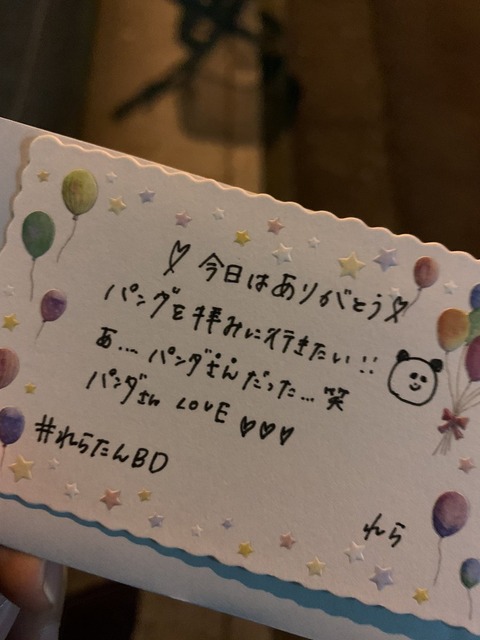 ♡今日はありがとう♡
パンダを拝みに行きたい!!
あ… パンダさんだった… 笑
パンダさん LOVE ♡♡♡
#れらたんBD
れら